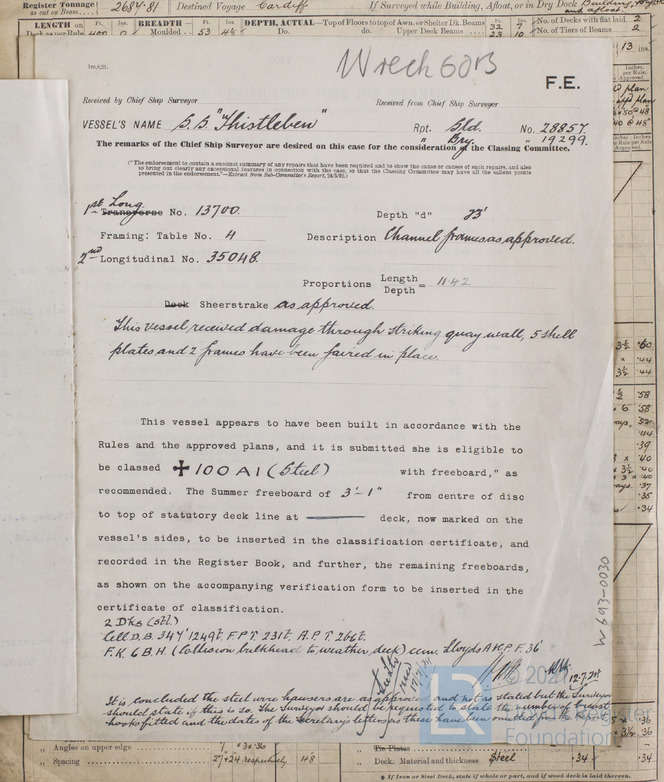 Register Tonnage
as cut on Beam
2684.81
Destined Voyage Cardiff
If Surveyed while Building, Afloat, or in Dry Dock Building,
and afloat.
LENGTH on
BREADTH—
Moulded
DEPTH, ACTUAL—Top of Floors to top of Awn. or Shelter Dk. Beams
Do. do. Upper Deck Beams
No. of Decks with flat laid 2
No. of Tiers of Beams 2
Wreck 60B
F.E.
Received by Chief Ship Surveyor
Received from Chief Ship Surveyor
VESSEL'S NAME S.S. "Thistleben" Rpt. Gld. No. 28857.
" Bry. " 19299.
The remarks of the Chief Ship Surveyor are desired on this case for the consideration of the Classing Committee.
("The endorsement to contain a succinct summary of any repairs that have been required and to show the causes of such repairs, and also
to bring out clearly any exceptional features in connection with the case, so that the Classing Committee may have all the salient points
presented in the endorsement."—Extract from Sub-Committee's Report, 24/5/92.)
1st Long.
Transverse No. 13700.
Depth "d" 23'
Framing: Table No. 4
Description Channel frames as approved.
2nd Longitudinal No. 35048.
Proportions Length
Depth = 11.42
Deck Sheerstrake as approved.
This vessel received damage through striking quay wall, 5 shell
plates and 2 frames have been faired in place.
This vessel appears to have been built in accordance with the
Rules and the approved plans, and it is submitted she is eligible to
be classed ✠100A1 (Steel) with freeboard," as
recommended. The Summer freeboard of 3'-1" from centre of disc
to top of statutory deck line at ——— deck, now marked on the
vessel's sides, to be inserted in the classification certificate, and
recorded in the Register Book, and further, the remaining freeboards,
as shown on the accompanying verification form to be inserted in the
certificate of classification.
2 Dks (stl)
Cell D.B. 347' 1249t. F.P.T. 231t. A.P.T. 266t.
F.K. 6 B.H. (Collision bulkhead to weather deck) cem. Lloyds A & C.P. F. 36'
12.7.21
It is concluded the steel wire hawsers are as approved and not as stated but the Surveyor
should state if this is so. The Surveyor should be requested to state the number of breast
hooks fitted and the dates of the Secretary's letters as these have been omitted from the report.
W693-0030
© 2021
LR
Lloyd's Register
Foundation
„ Angles on upper edge
„ Spacing 27+24 respectively 48
Tie Plates
„ Deck. Material and thickness Steel .34
If Iron or Steel Deck, state if whole or part, and if wood deck is laid thereon.